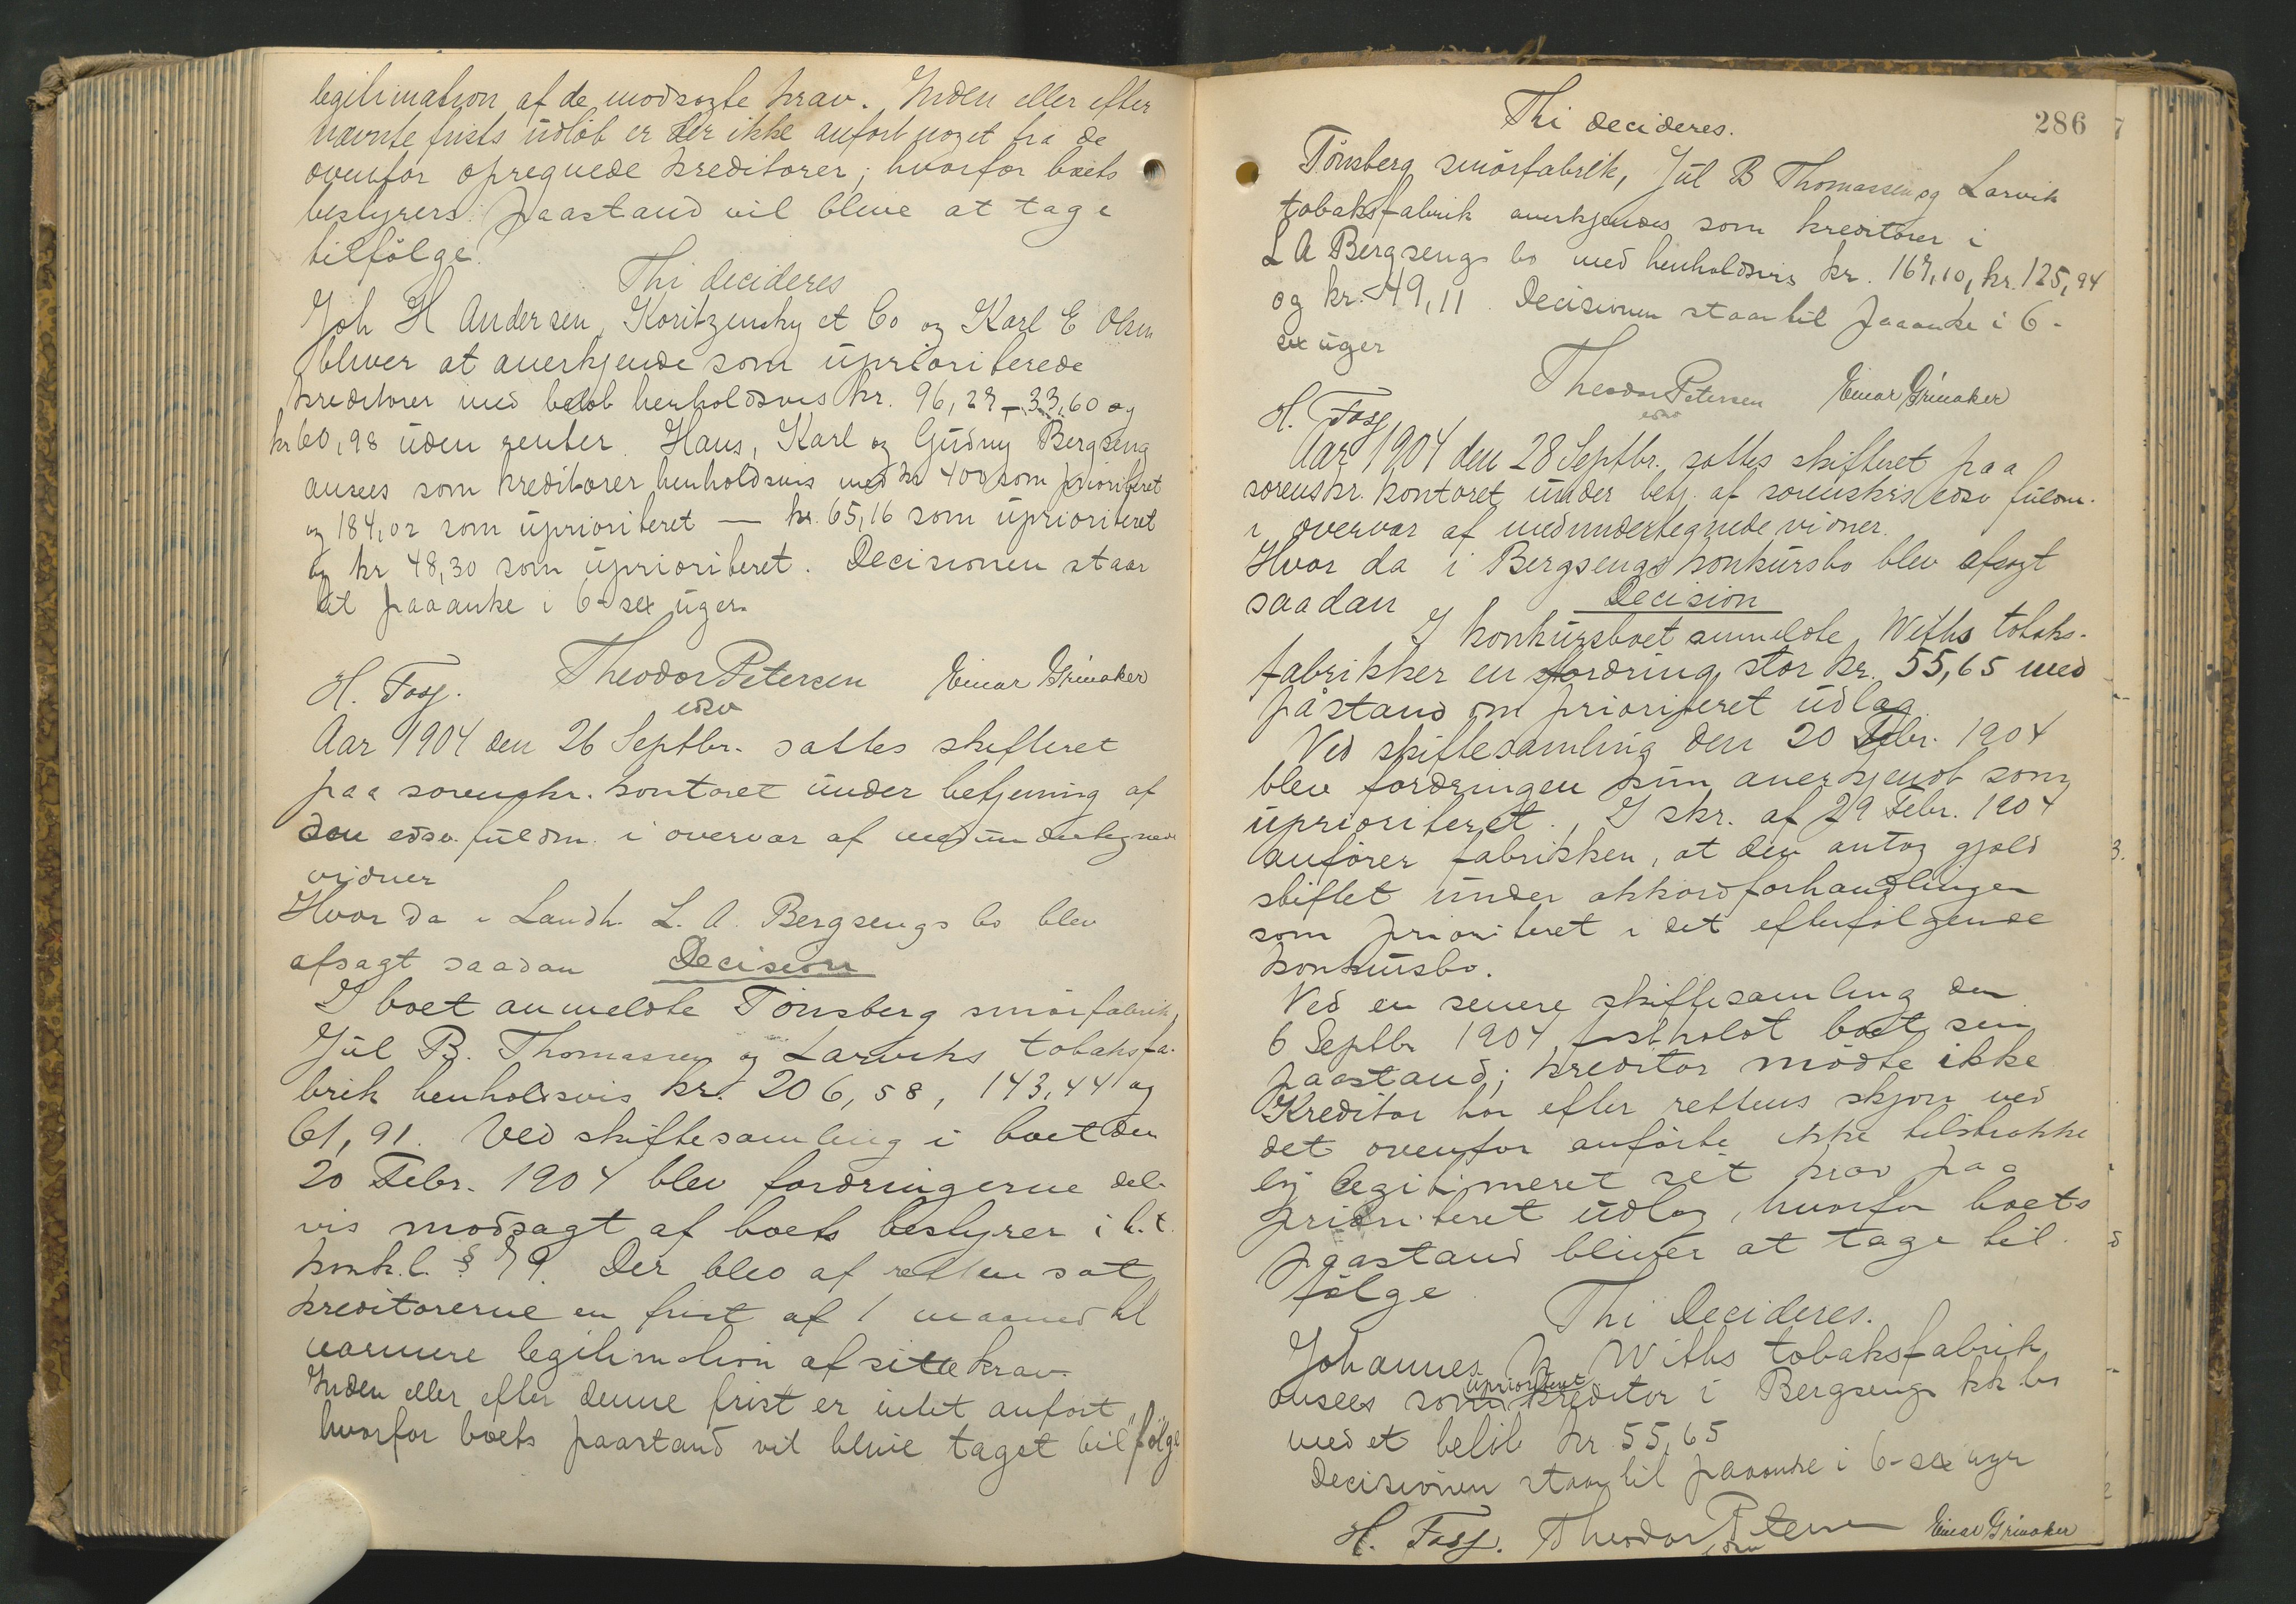 legitimation af de modsagte krav. Inden eller efter
nævnte frists udløb er der ikke anført noget fra de
ovenfor opregnede kreditorer; hvorfor boets
bestyrers paastand vil blive at tage
tilfølge.
Thi decideres
Joh H Andersen, Koritzinsky et Co og Karl E Olsen
bliver at anerkjende som uprioriterede
kreditorer med beløb henholdsvis kr. 96,27 – 33,60 og
kr 60,98 uden renter. Hans, Karl og Gudny Bergseng
ansees som kreditorer henholdsvis med kr 400 som prioriteret
og 184,02 som uprioriteret — kr. 65,16 som uprioriteret
og kr 48,30 som uprioriteret. Decisionen staar
til paaanke i 6 - sex uger.
H. Fosf. Theodor Petersen Einar Grinaker
edsv
Aar 1904 den 26 Septbr. sattes skifteret
paa sorenskr. kontoret under betjening af
den edsv. fuldm. i overvær af medundertegnede
vidner
Hvor da i Landh. L. A. Bergsengs bo blev
afsagt saadan Decision
I boet anmeldte Tønsberg smørfabrik,
Jul B. Thomassen og Larviks tobaksfa-
brik henholdsvis kr. 206,58, 143,44 og
61,91. Ved skiftesamling i boet den
20 Febr. 1904 blev fordringerne del-
vis modsagt af boets bestyrer i h.t.
konk.l. § 79. Der blev af retten sat
kreditorerne en frist af 1 maaned til
nærmere legitimation af sitte krav.
Inden eller efter denne frist er intet anført,
hvorfor boets paastand vil blive taget til følge
286
Thi decideres.
Tønsberg smørfabrik, Jul B Thomassen og Larvik
tobaksfabrik anerkjendes som kreditorer i
L A Bergsengs bo med henholdsvis kr. 167,10, kr. 125,94
og kr. 49,11. Decisionen staar til paaanke i 6 -
sex uger
H. Fosf Theodor Petersen Einar Grinaker
edsv
Aar 1904 den 28 Septbr. sattes skifteret paa
sorenskr. kontoret under betj. af sorenskrs edsv fuldm.
i overvær af medundertegnede vidner.
Hvor da i Bergsengs konkursbo blev afsagt
saadan Decision
I konkursboet anmeldte Withs tobaks-
fabrikker en fordring, stor kr. 55,65 med
påstand om prioriteret udlæg.
Ved skiftesamling den 20 Febr. 1904
blev fordringen kun anerkjendt som
uprioriteret. I skr. af 29 Febr. 1904
anfører fabrikken, at den antog gjæld
stiftet under akkordforhandlingen
som prioriteret i det efterfølgende
konkursbo.
Ved en senere skiftesamling den
6 Septbr 1904 fastholdt boet sin
paastand; kreditor mødte ikke
Kreditor har efter rettens skjøn ved
det ovenfor anførte ikke tilstrække
lig legitimeret sit krav paa
prioriteret udlæg, hvorfor boets
paastand bliver at tage til
følge.
Thi Decideres.
Johannes Withs tobaksfabrik
ansees som uprioriteret kreditor i Bergsengs kk bo
med et beløb kr. 55,65
Decisionen staar til paaanke i 6 - sex uger
H. Fosf. Theodor Petersen Einar Grinaker
edsv